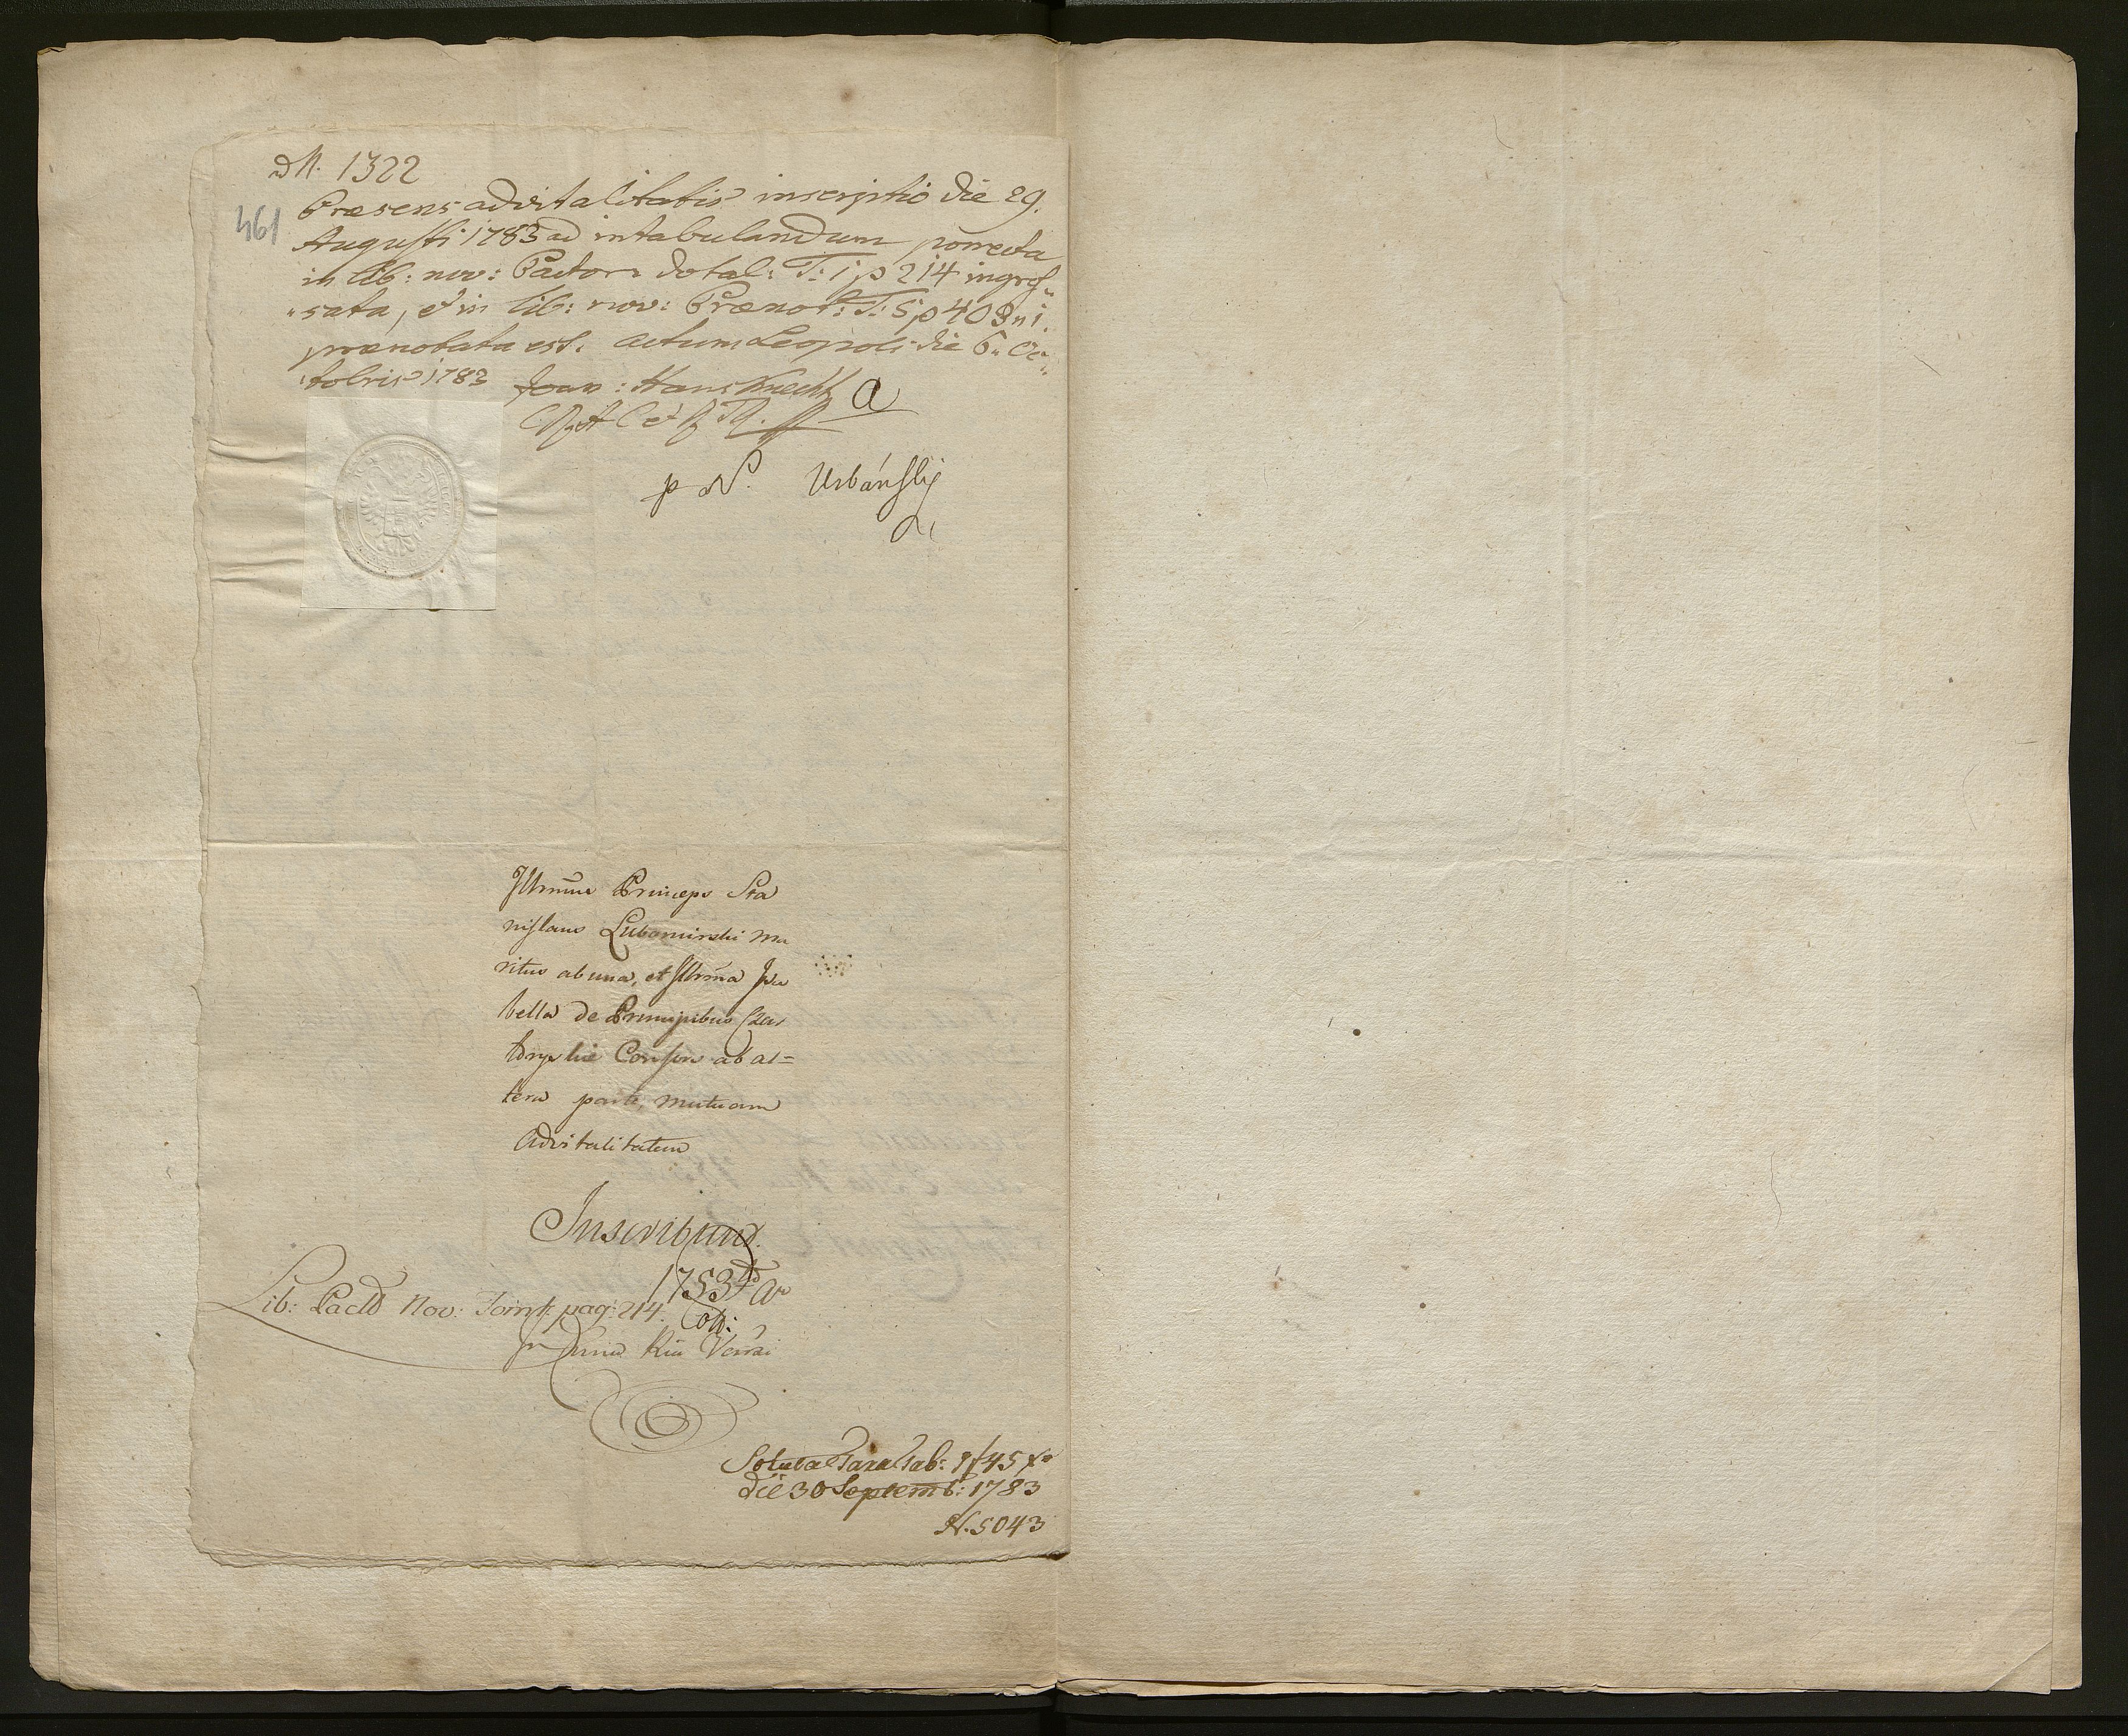 ad N. 1322
461
Præsens advitalitatis inscriptio die 29.
Augusti 1783 ad intabulandum porrecta
in lib: nov: Pactor: dotal: T: 1 p 214 ingros„
„sata, et in lib: nov: Prænot: T: 5 p 403 n 1.
prænotata est. Actum Leopoli die 6„ Oc„
„tobris 1783 Joan: Hansknecht
p N. Urbański
Illrmus Princeps Sta
nislaus Lubomirski ma
ritus ab una, et Illrma Isa
bella de Principibus Czar
toryskie Consors ab al=
tera parte, mutuam
Advitalitatem
Inscribunt.
1753
Lib: Pactor Nov: Tom 1. pag: 214.
Soluta Taxa Tab: 9 f 45 xr
die 30 Septemb: 1783
N. 5043